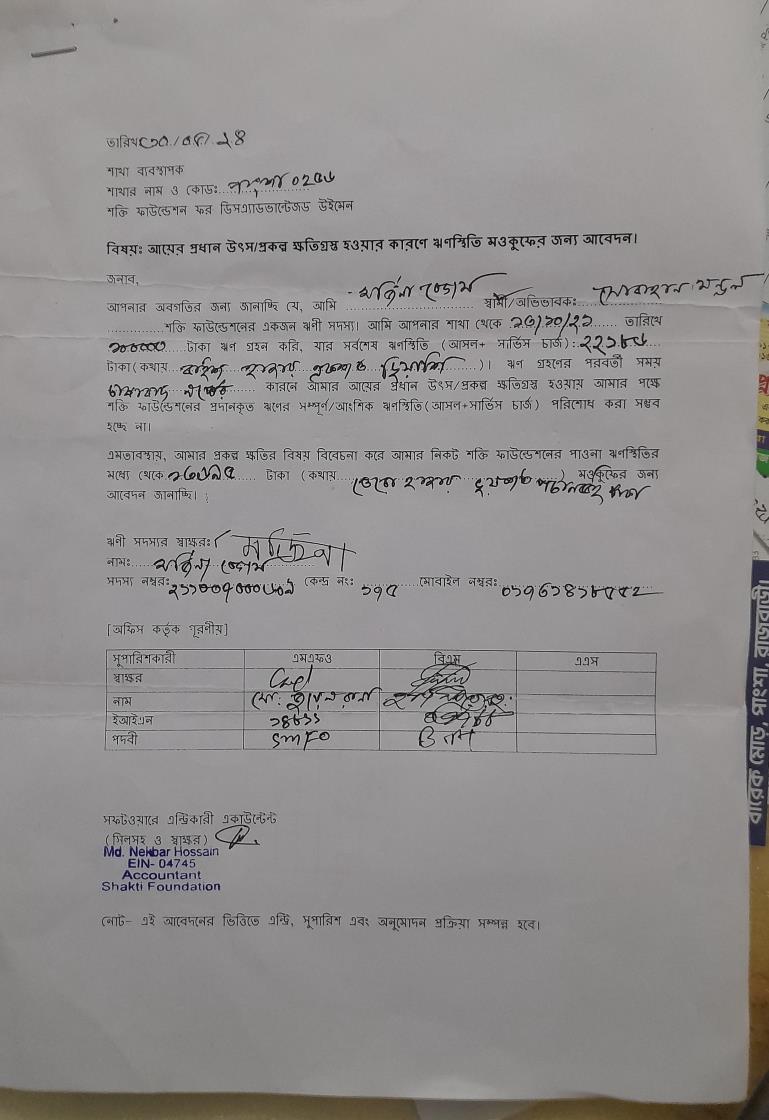 তারিখ ৩০/০৫/২৪
শাখা ব্যবস্থাপক
শাখার নাম ও কোডঃ পাংশা
শক্তি ফাউন্ডেশন ফর ডিসএ্যাডভান্টেজড উইমেন
বিষয়ঃ আয়ের প্রধান উৎস/প্রকল্প ক্ষতিগ্রস্থ হওয়ার কারণে ঋণস্থিতি মওকুফের জন্য আবেদন।
জনাব,
আপনার অবগতির জন্য জানাচ্ছি যে, আমি মর্জিনা বেগম স্বামী/অভিভাবকঃ সোবাহান মন্ডল
শক্তি ফাউন্ডেশনের একজন ঋণী সদস্য। আমি আপনার শাখা থেকে তারিখে
টাকা ঋণ গ্রহন করি, যার সর্বশেষ ঋণস্থিতি (আসল+ সার্ভিস চার্জ):
টাকা(কথায় বাইশ হাজার একশত )। ঋণ গ্রহণের পরবর্তী সময়
কারনে আমার আয়ের প্রধান উৎস/প্রকল্প ক্ষতিগ্রস্থ হওয়ায় আমার পক্ষে
শক্তি ফাউন্ডেশনের প্রদানকৃত ঋণের সম্পূর্ণ/আংশিক ঋণস্থিতি(আসল+সার্ভিস চার্জ) পরিশোধ করা সম্ভব
হচ্ছে না।
এমতাবস্থায়, আমার প্রকল্প ক্ষতির বিষয় বিবেচনা করে আমার নিকট শক্তি ফাউন্ডেশনের পাওনা ঋণস্থিতির
মধ্যে থেকে ১৩৬৯৫ টাকা (কথায় তেরো হাজার ছয়শত পচানব্বই টাকা) মওকুফের জন্য
আবেদন জানাচ্ছি।
ঋণী সদস্যর স্বাক্ষরঃ মর্জিনা
নামঃ মর্জিনা বেগম
সদস্য নম্বরঃ কেন্দ্র নং: ১৭৫ মোবাইল নম্বরঃ
[অফিস কর্তৃক পূরণীয়]
সুপারিশকারী এমএফও বিএম এএস
স্বাক্ষর
নাম মো:
ইআইএন
পদবী SMFO BM
সফটওয়ারে এন্ট্রিকারী একাউন্টেন্ট
(সিলসহ ও স্বাক্ষর)
Md. Nekbar Hossain
EIN- 04745
Accountant
Shakti Foundation
নোট- এই আবেদনের ভিত্তিতে এন্ট্রি, সুপারিশ এবং অনুমোদন প্রক্রিয়া সম্পন্ন হবে।
বারেক মোড়, পাংশা, রাজবাড়ী।